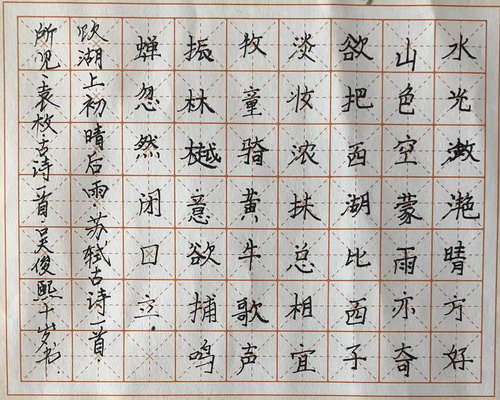 水光潋滟晴方好
山色空蒙雨亦奇
欲把西湖比西子
淡妆浓抹总相宜
牧童骑黄牛歌声
振林樾意欲捕鸣
蝉忽然闭口立.
饮湖上初晴.后雨.苏轼古诗一首.
所见.袁枚古诗一首.吴俊熙十岁书.